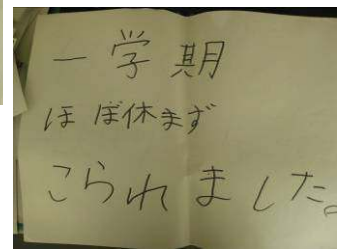 一学期
ほぼ休まず
こられました。